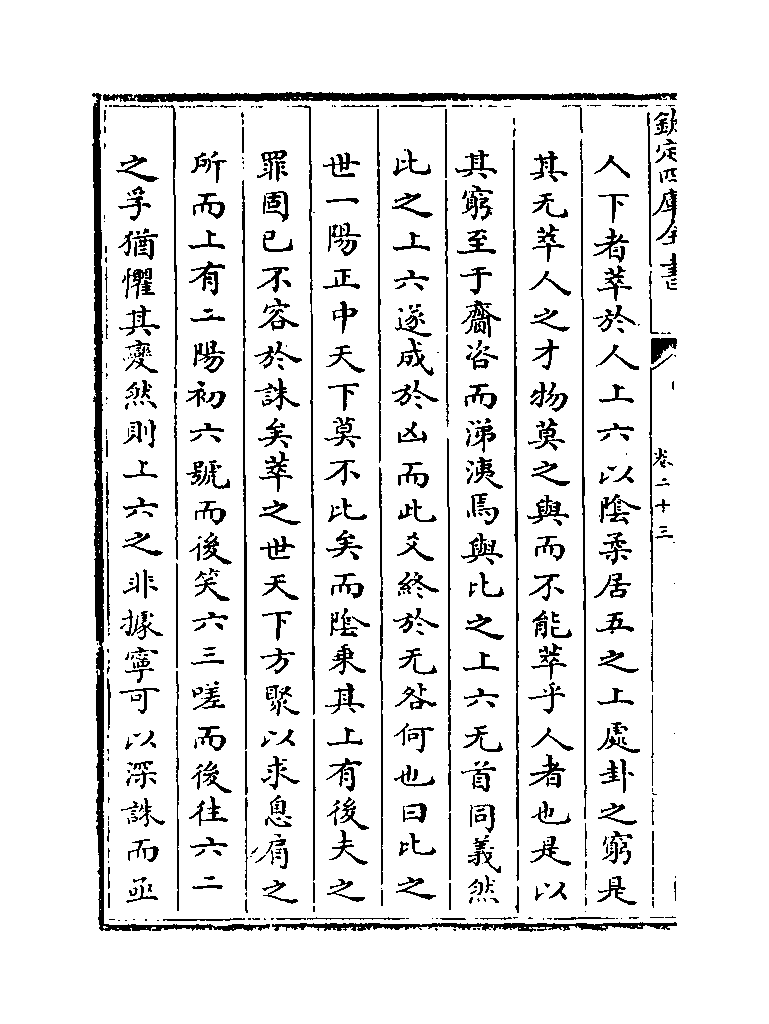 欽定四庫全書
卷二十三
人下者萃於人上六以陰柔居五之上處卦之窮是
其无萃人之才物莫之與而不能萃乎人者也是以
其窮至于齎咨而涕洟焉與比之上六无首同義然
比之上六遂成於凶而此爻終於无咎何也曰比之
世一陽正中天下莫不比矣而陰乗其上有後夫之
罪固已不容於誅矣萃之世天下方聚以求息肩之
所而上有二陽初六號而後笑六三嗟而後往六二
之孚猶懼其變然則上六之非據寧可以深誅而亟